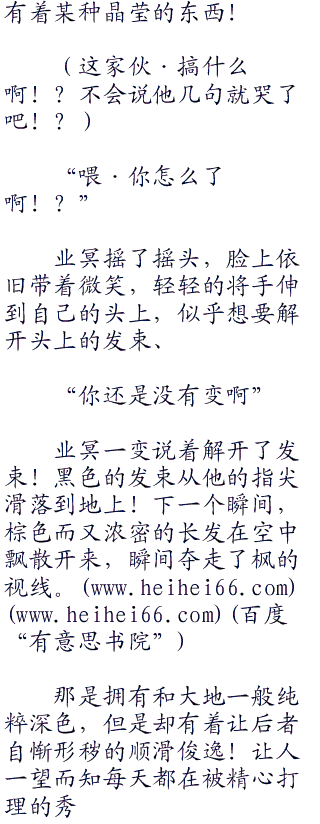 有着某种晶莹的东西！
（这家伙·搞什么
啊！？不会说他几句就哭了
吧！？）
“喂·你怎么了
啊！？”
业冥摇了摇头，脸上依
旧带着微笑，轻轻的将手伸
到自己的头上，似乎想要解
开头上的发束、
“你还是没有变啊”
业冥一变说着解开了发
束！黑色的发束从他的指尖
滑落到地上！下一个瞬间，
棕色而又浓密的长发在空中
飘散开来，瞬间夺走了枫的
视线。(www.heihei66.com)
(www.heihei66.com)(百度
“有意思书院”)
那是拥有和大地一般纯
粹深色，但是却有着让后者
自惭形秽的顺滑俊逸！让人
一望而知每天都在被精心打
理的秀